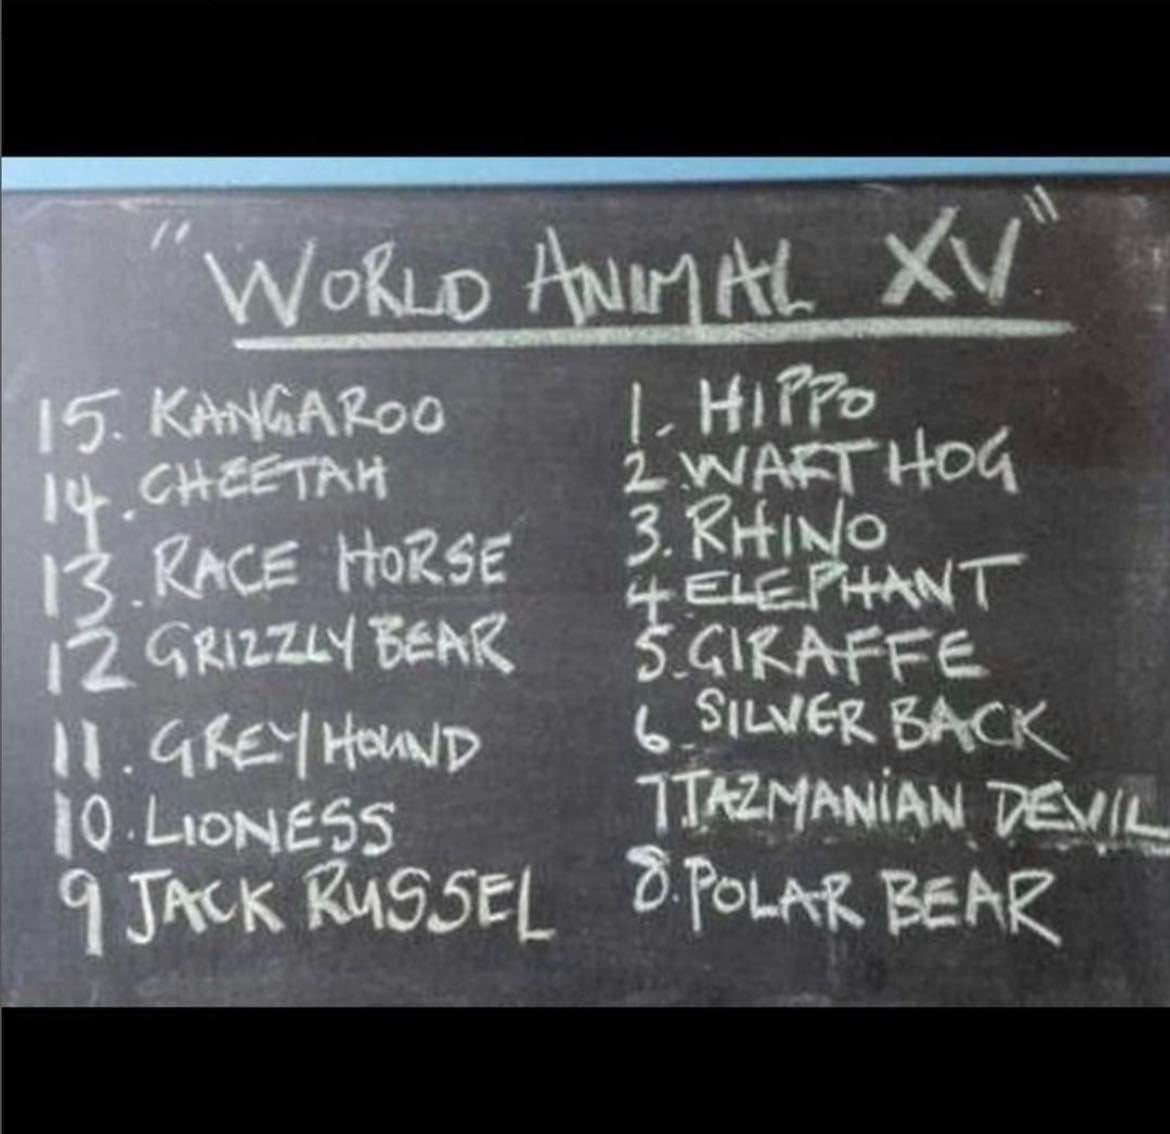 "WORLD ANIMAL XV"
15. KANGAROO
14. CHEETAH
13. RACE HORSE
12 GRIZZLY BEAR
11. GREYHOUND
10. LIONESS
9 JACK RUSSEL
1. HIPPO
2. WART HOG
3. RHINO
4 ELEPHANT
5. GIRAFFE
6. SILVER BACK
7. TAZMANIAN DEVIL
8. POLAR BEAR